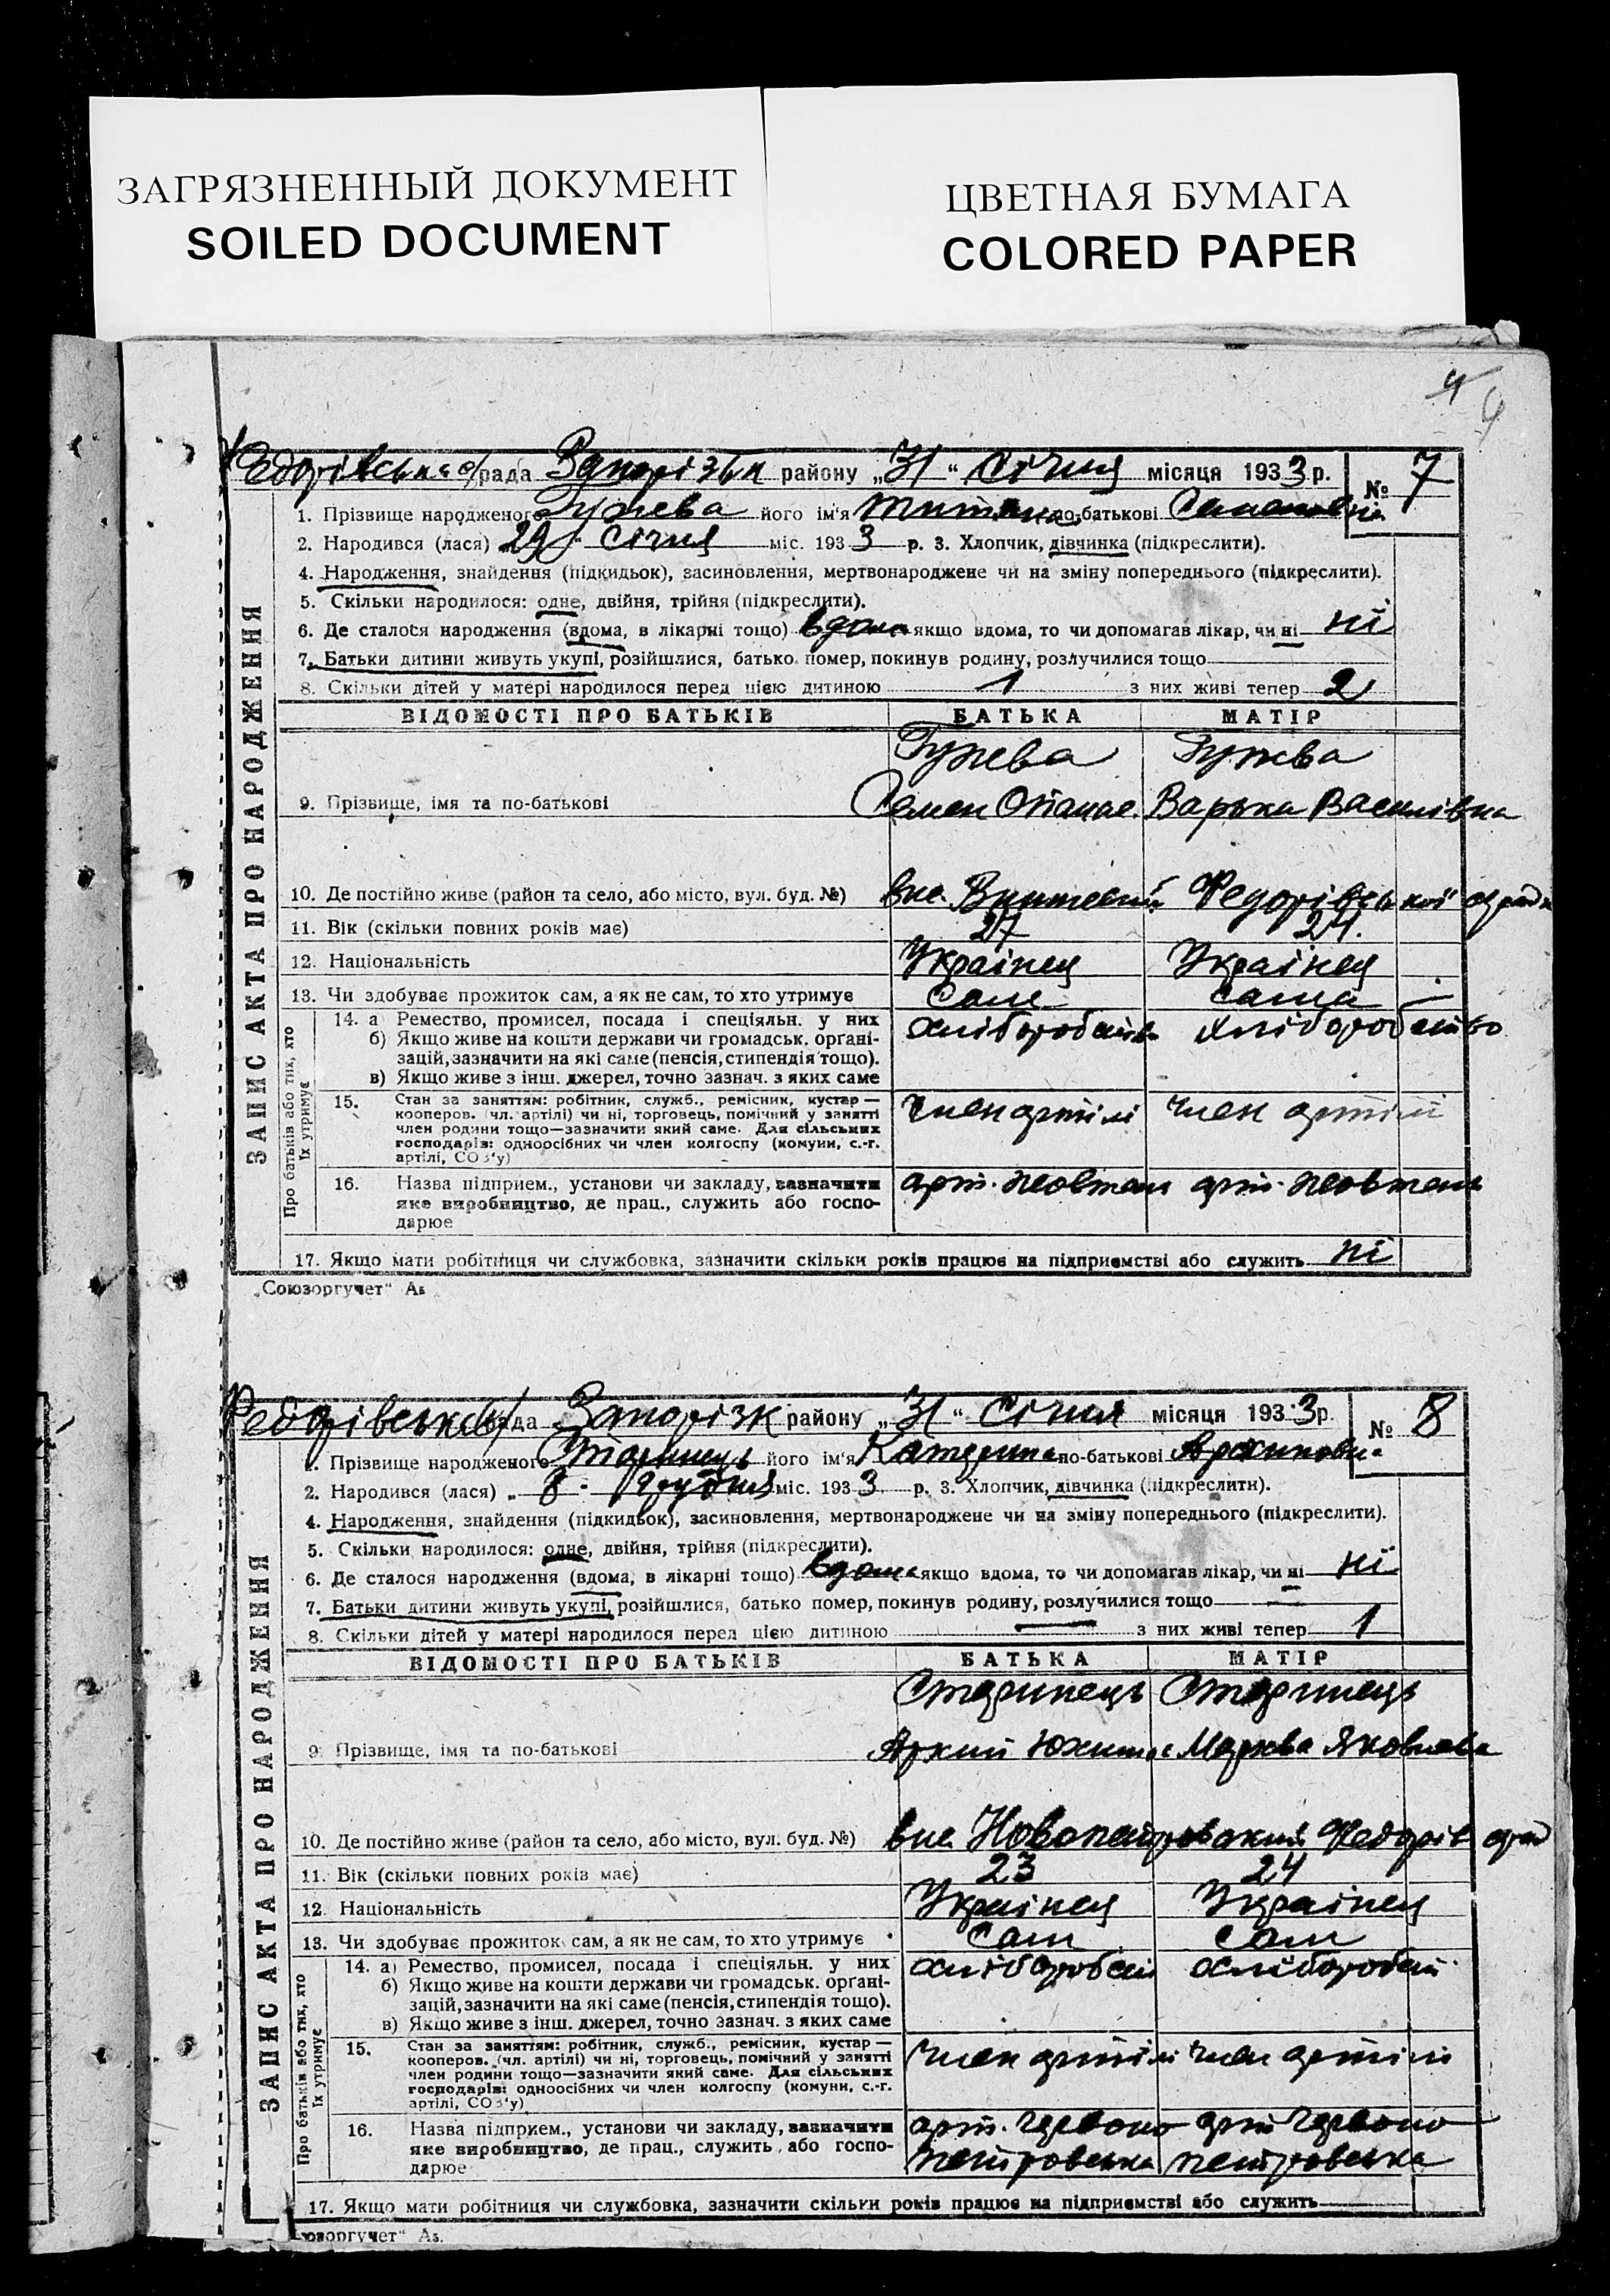 ЗАГРЯЗНЕННЫЙ ДОКУМЕНТ
SOILED DOCUMENT
ЦВЕТНАЯ БУМАГА
COLORED PAPER
4
рада Запорізьк району „31“ Січня місяця 1933 р. № 7
1. Прізвище народженого його ім'я по-батькові
2. Народився (лася) 29 Січня міс. 1933 р. 3. Хлопчик, дівчинка (підкреслити).
4. Народження, знайдення (підкидьок), засиновлення, мертвонароджене чи на зміну попереднього (підкреслити).
5. Скільки народилося: одне, двійня, трійня (підкреслити).
6. Де сталося народження (вдома, в лікарні тощо) вдома якщо вдома, то чи допомагав лікар, чи ні ні
7. Батьки дитини живуть укупі, розійшлися, батько помер, покинув родину, розлучилися тощо
8. Скільки дітей у матері народилося перед цією дитиною 1 з них живі тепер 2
ВІДОМОСТІ ПРО БАТЬКІВ БАТЬКА МАТІР
9. Прізвище, імя та по-батькові Семен Варька Василівна
10. Де постійно живе (район та село, або місто, вул. буд. №) Федорівської
11. Вік (скільки повних років має) 27 24.
12. Національність Українец Українец
13. Чи здобуває прожиток сам, а як не сам, то хто утримує Сам сама
14. а Ремество, промисел, посада і спеціяльн. у них хліборобств хліборобство
б) Якщо живе на кошти держави чи громадськ. органі-
зацій, зазначити на які саме (пенсія, стипендія тощо).
в) Якщо живе з інш. джерел, точно зазнач. з яких саме
15. Стан за заняттям: робітник, служб., ремісник, кустар — член артілі член артілі
кооперов. (чл. артілі) чи ні, торговець, помічний у занятті
член родини тощо—зазначити який саме. Для сільських
господарів: одноосібних чи член колгоспу (комуни, с.-г.
артілі, СОЗ'у)
16. Назва підприєм., установи чи закладу, зазначити арт. жовтень арт. жовтень
яке виробництво, де прац., служить або госпо-
дарює
17. Якщо мати робітниця чи службовка, зазначити скільки років працює на підприємстві або служить ні
Про батьків або тих, хто
їх утримує
ЗАПИС АКТА ПРО НАРОДЖЕННЯ
„Союзоргучет“
рада Запорізк району „31“ Січня місяця 1933 р. № 8
1. Прізвище народженого його ім'я Катерина по-батькові
2. Народився (лася) „ 8 Грудня міс. 1933 р. 3. Хлопчик, дівчинка (підкреслити).
4. Народження, знайдення (підкидьок), засиновлення, мертвонароджене чи на зміну попереднього (підкреслити).
5. Скільки народилося: одне, двійня, трійня (підкреслити).
6. Де сталося народження (вдома, в лікарні тощо) вдома якщо вдома, то чи допомагав лікар, чи ні ні
7. Батьки дитини живуть укупі, розійшлися, батько помер, покинув родину, розлучилися тощо —
8. Скільки дітей у матері народилося перед цією дитиною — з них живі тепер 1
ВІДОМОСТІ ПРО БАТЬКІВ БАТЬКА МАТІР
Старинець Старинець
9. Прізвище, імя та по-батькові
10. Де постійно живе (район та село, або місто, вул. буд. №)
11. Вік (скільки повних років має) 23 24
12. Національність Українец Українец
13. Чи здобуває прожиток сам, а як не сам, то хто утримує Сам Сам
14. а) Ремество, промисел, посада і спеціяльн. у них хліборобст хліборобст
б) Якщо живе на кошти держави чи громадськ. органі-
зацій, зазначити на які саме (пенсія, стипендія тощо).
в) Якщо живе з інш. джерел, точно зазнач. з яких саме
15. Стан за заняттям: робітник, служб., ремісник, кустар — член артілі член артілі
кооперов. (чл. артілі) чи ні, торговець, помічний у занятті
член родини тощо—зазначити який саме. Для сільських
господарів: одноосібних чи член колгоспу (комуни, с.-г.
артілі, СОЗ'у)
16. Назва підприєм., установи чи закладу, зазначити арт. Червоно арт Червоно
яке виробництво, де прац., служить або госпо- петровська петровська
дарює
17. Якщо мати робітниця чи службовка, зазначити скільки років працює на підприємстві або служить
Про батьків або тих, хто
їх утримує
ЗАПИС АКТА ПРО НАРОДЖЕННЯ